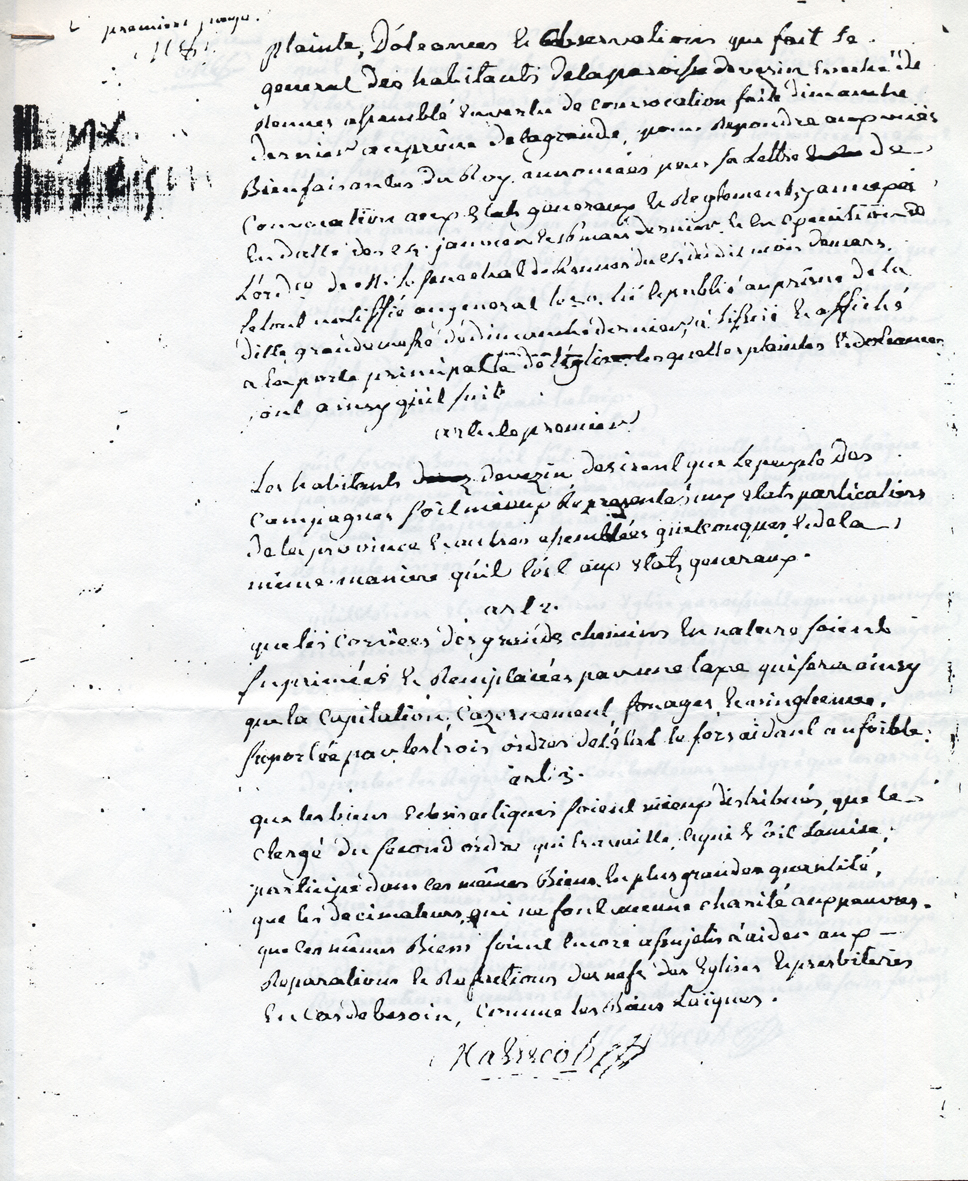 premiere page.
plainte, Doleances et observations que fait Le
general des habitants de la paroisse de vezin Eveché de
Rennes assemblé En vertu de convocation faite dimanche
dernier au prône de la grande, pour Repondre aux vuës
Bienfaisantes du Roy, annoncées pour sa Lettre de
Convocation aux Etats generaux et Reglements y annexés
En datte des 24 janvier et 16 mars dernier, et En Execution de
L'ord.ce de M. le senechal de Rennes du dit mois de mars,
Le tout notiffié au general Le et publié au prône de la
ditte grande messe de dimanche dernier, et affiché
a la porte principalle de l'Eglise lesquelles plaintes et doleances
sont ainsy qu'il suit
article premier
Les habitants de vezin desirent que Le peuple des
Campagnes soit mieux Representé aux Etats particuliers
de la province et autres assemblées quelconques et de la
même maniere qu'il l'est aux Etats generaux.
art 2.
que les Corvées des grands chemins En nature soient
suprimées et Remplacées par une taxe qui sera ainsy
que la Capitation, Cazernement, fouages, et vingtieme,
suportée par les trois ordres de l'Etat le fort aidant au foible.
art. 3.
que les biens Eclesiastiques soient mieux distribués, que le
clergé du second ordre qui travaille,
participe dans les mêmes Biens En plus grande quantité,
que les decimateurs, qui ne font aucune charité aux pauvres.
que ces mêmes Biens soient Encore assujetis à aider aux
Reparations et Refections des nefs des Eglises et presbiteres
En Cas de besoin, Comme les Biens Laïques.